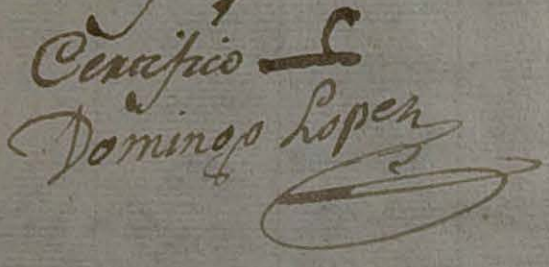 Certifico
Domingo Lopez